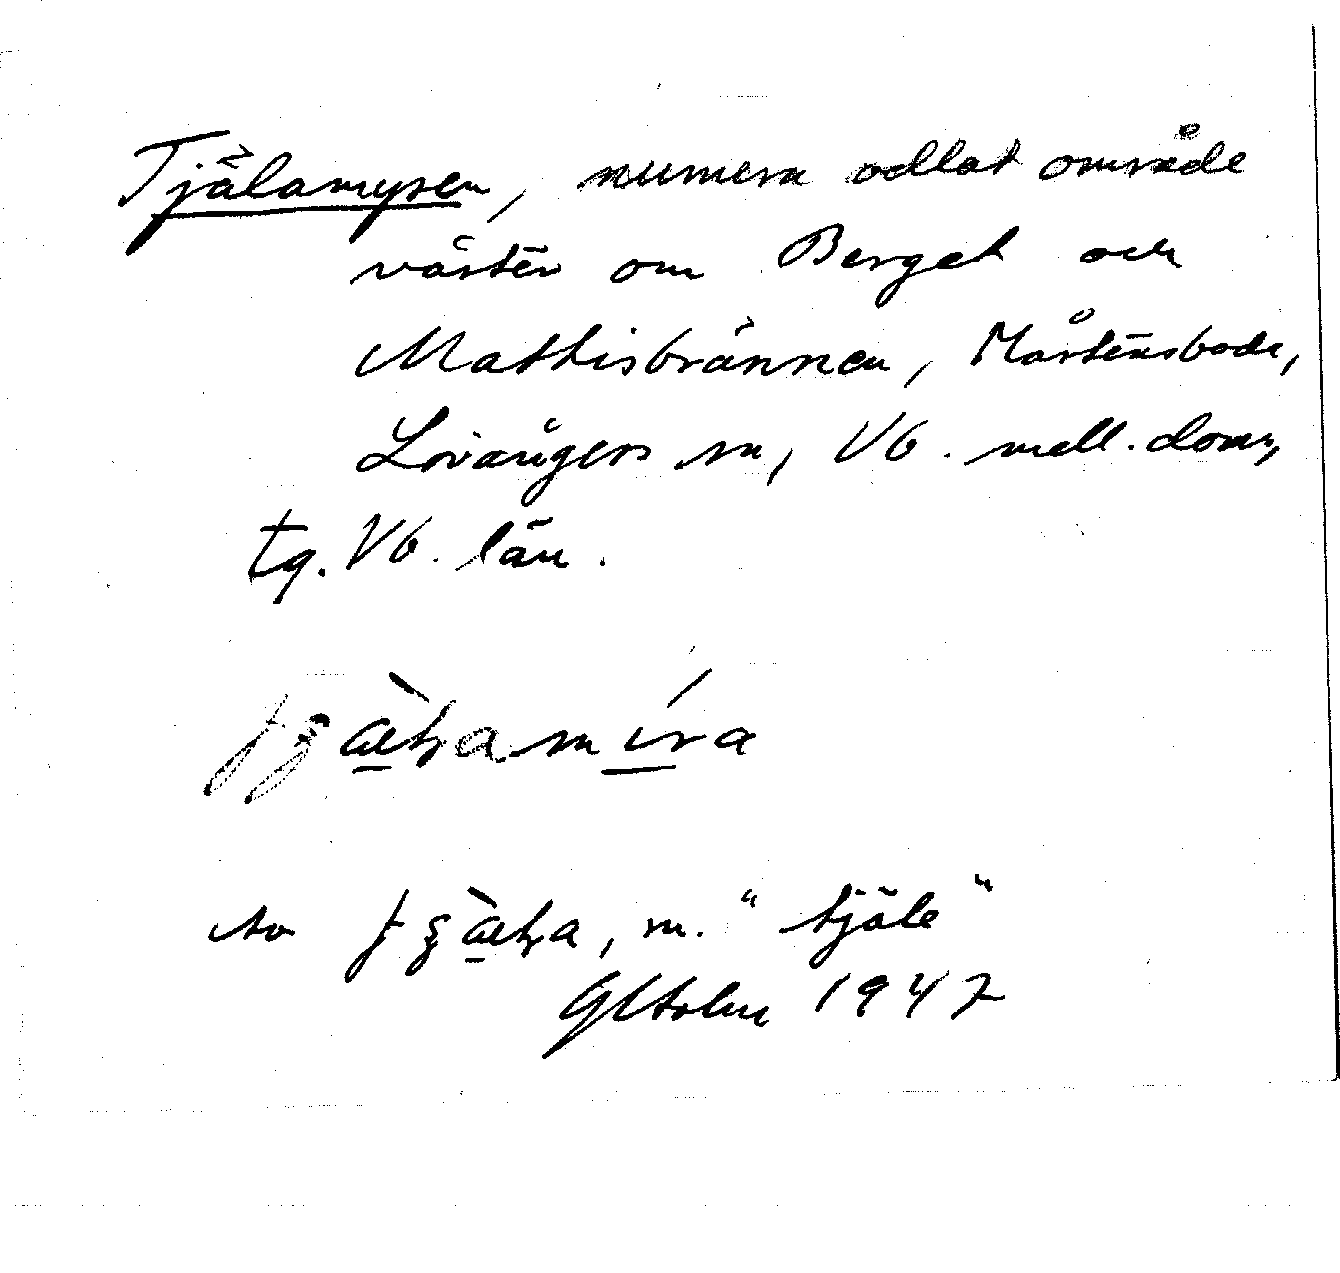 Tjälamyren, numera odlat område
väster om Berget och
Mathisbrännen, Mårtensboda,
Lövångers sn, Vb. mell. doms,
tg. Vb. län.
av m. "tjäle"
1947